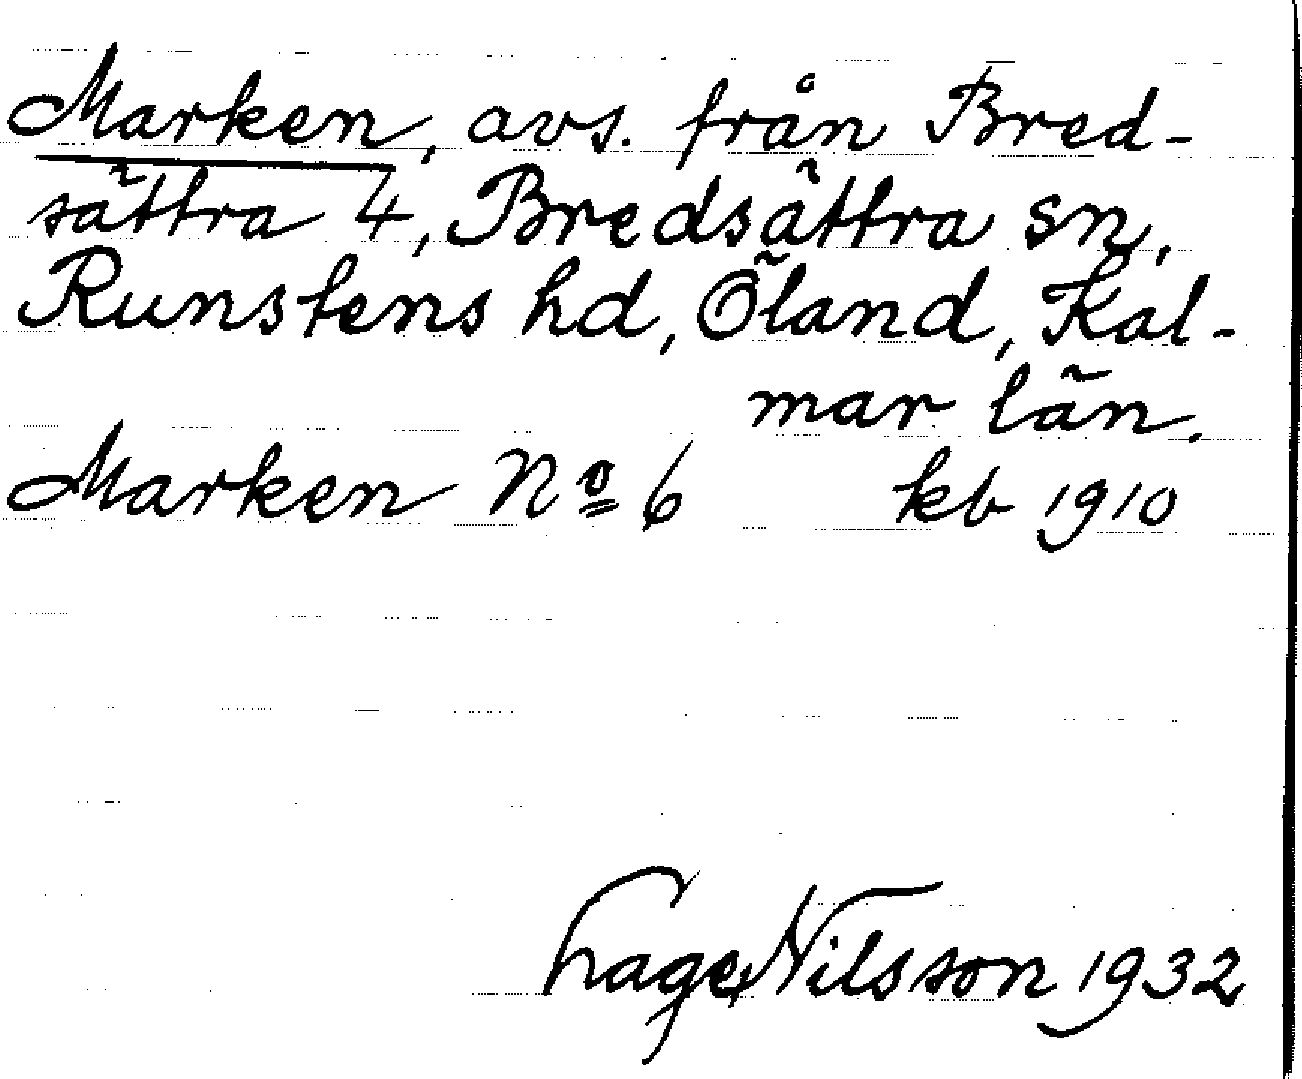 Marken, avs. från Bred-
sättra 4, Bredsättra sn,
Runstens hd, Öland, Kal-
mar län.
Marken No 6 kb 1910
Hage Nilsson 1932